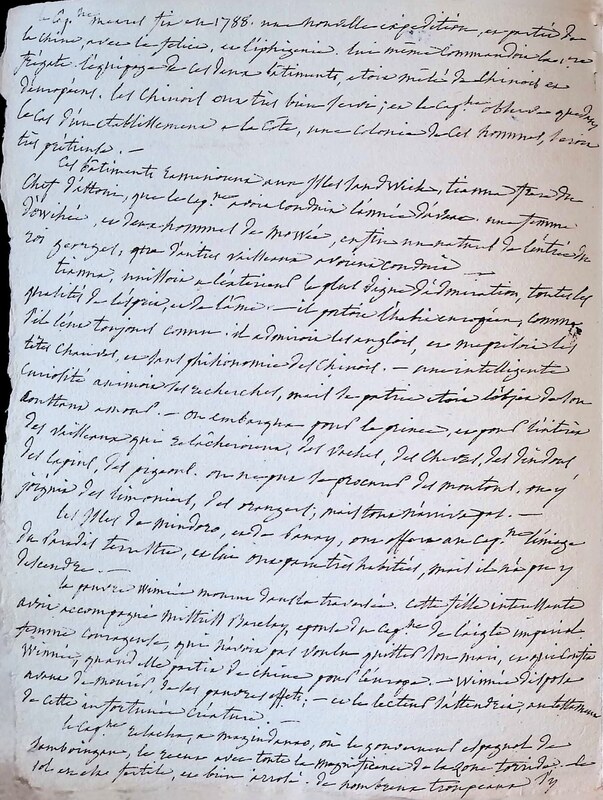 le Cap.ne meares fit en 1788. une nouvelle expédition, en partie de
la Chine, avec la felice, et l'iphigenie. lui même commandoit la 1.re
frégate l'équipage de ces deux bâtiments, etoit mêlé de Chinois et
d'européens. les Chinois ont très bien servi; et le Cap.ne observe que dans
le cas d'un etablissement a la Cote, une colonie de ces hommes, seroit
très prétieuse. —
Ces bâtiments ramenoient aux Isles Sandwich, tianna frere du
Chef d'attoui, que le Cap.ne avoit conduit l'année d'avant. une femme
d'owihée, et deux hommes de mowée, enfin un naturel de l'entrée du
roi georges, que d'autres vaisseaux avoient conduit —
tianna unissoit a l'extérieur le plus digne d'admiration, toutes les
qualités de l'esprit, et de l'âme. — il portoit l'habit européen, comme
s'il l'eut toujours connu. il admiroit les anglois, et méprisoit les
têtes chauves, et sans phisionomie des Chinois. — une intelligente
curiosité animoit ses recherches, mais sa patrie etoit l'objet de son
constant amour. — on embarqua pour le prince, et pour l'intérêt
des vaisseaux qui relacheroient, des vaches, des chevres, des dindons
des lapins, des pigeons. on ne put se procurer des moutons, on y
joignit des limoniers, des orangers; mais tout n'arriva pas. —
les Isles de mindoro, et de panay, ont offert au Cap.ne l'image
du Paradis terrestre, et lui ont paru très habitées, mais il n'a pu y
descendre. —
la pauvre Winnée mourut dans la traversée. cette fille interessante
avoit accompagné Mistriss Barclay, epouse du Cap.ne de l'aigle imperial
femme courageuse, qui n'avoit pas voulu quitter son mari, et qui
Winnée, quand elle partit de chine pour l'europe. — Winnée disposa
avant de mourir, de ses pauvres effets. — et le lecteur s'attendrit au testament
de cette infortunée créature. —
le Cap.ne relacha, a magindanao, où le gouverneur espagnol de
Samboingan, le recut avec toute la magnificence de la Zone torride. le
sol en est fertile, et bien arrosé. de nombreux troupeaux s'y